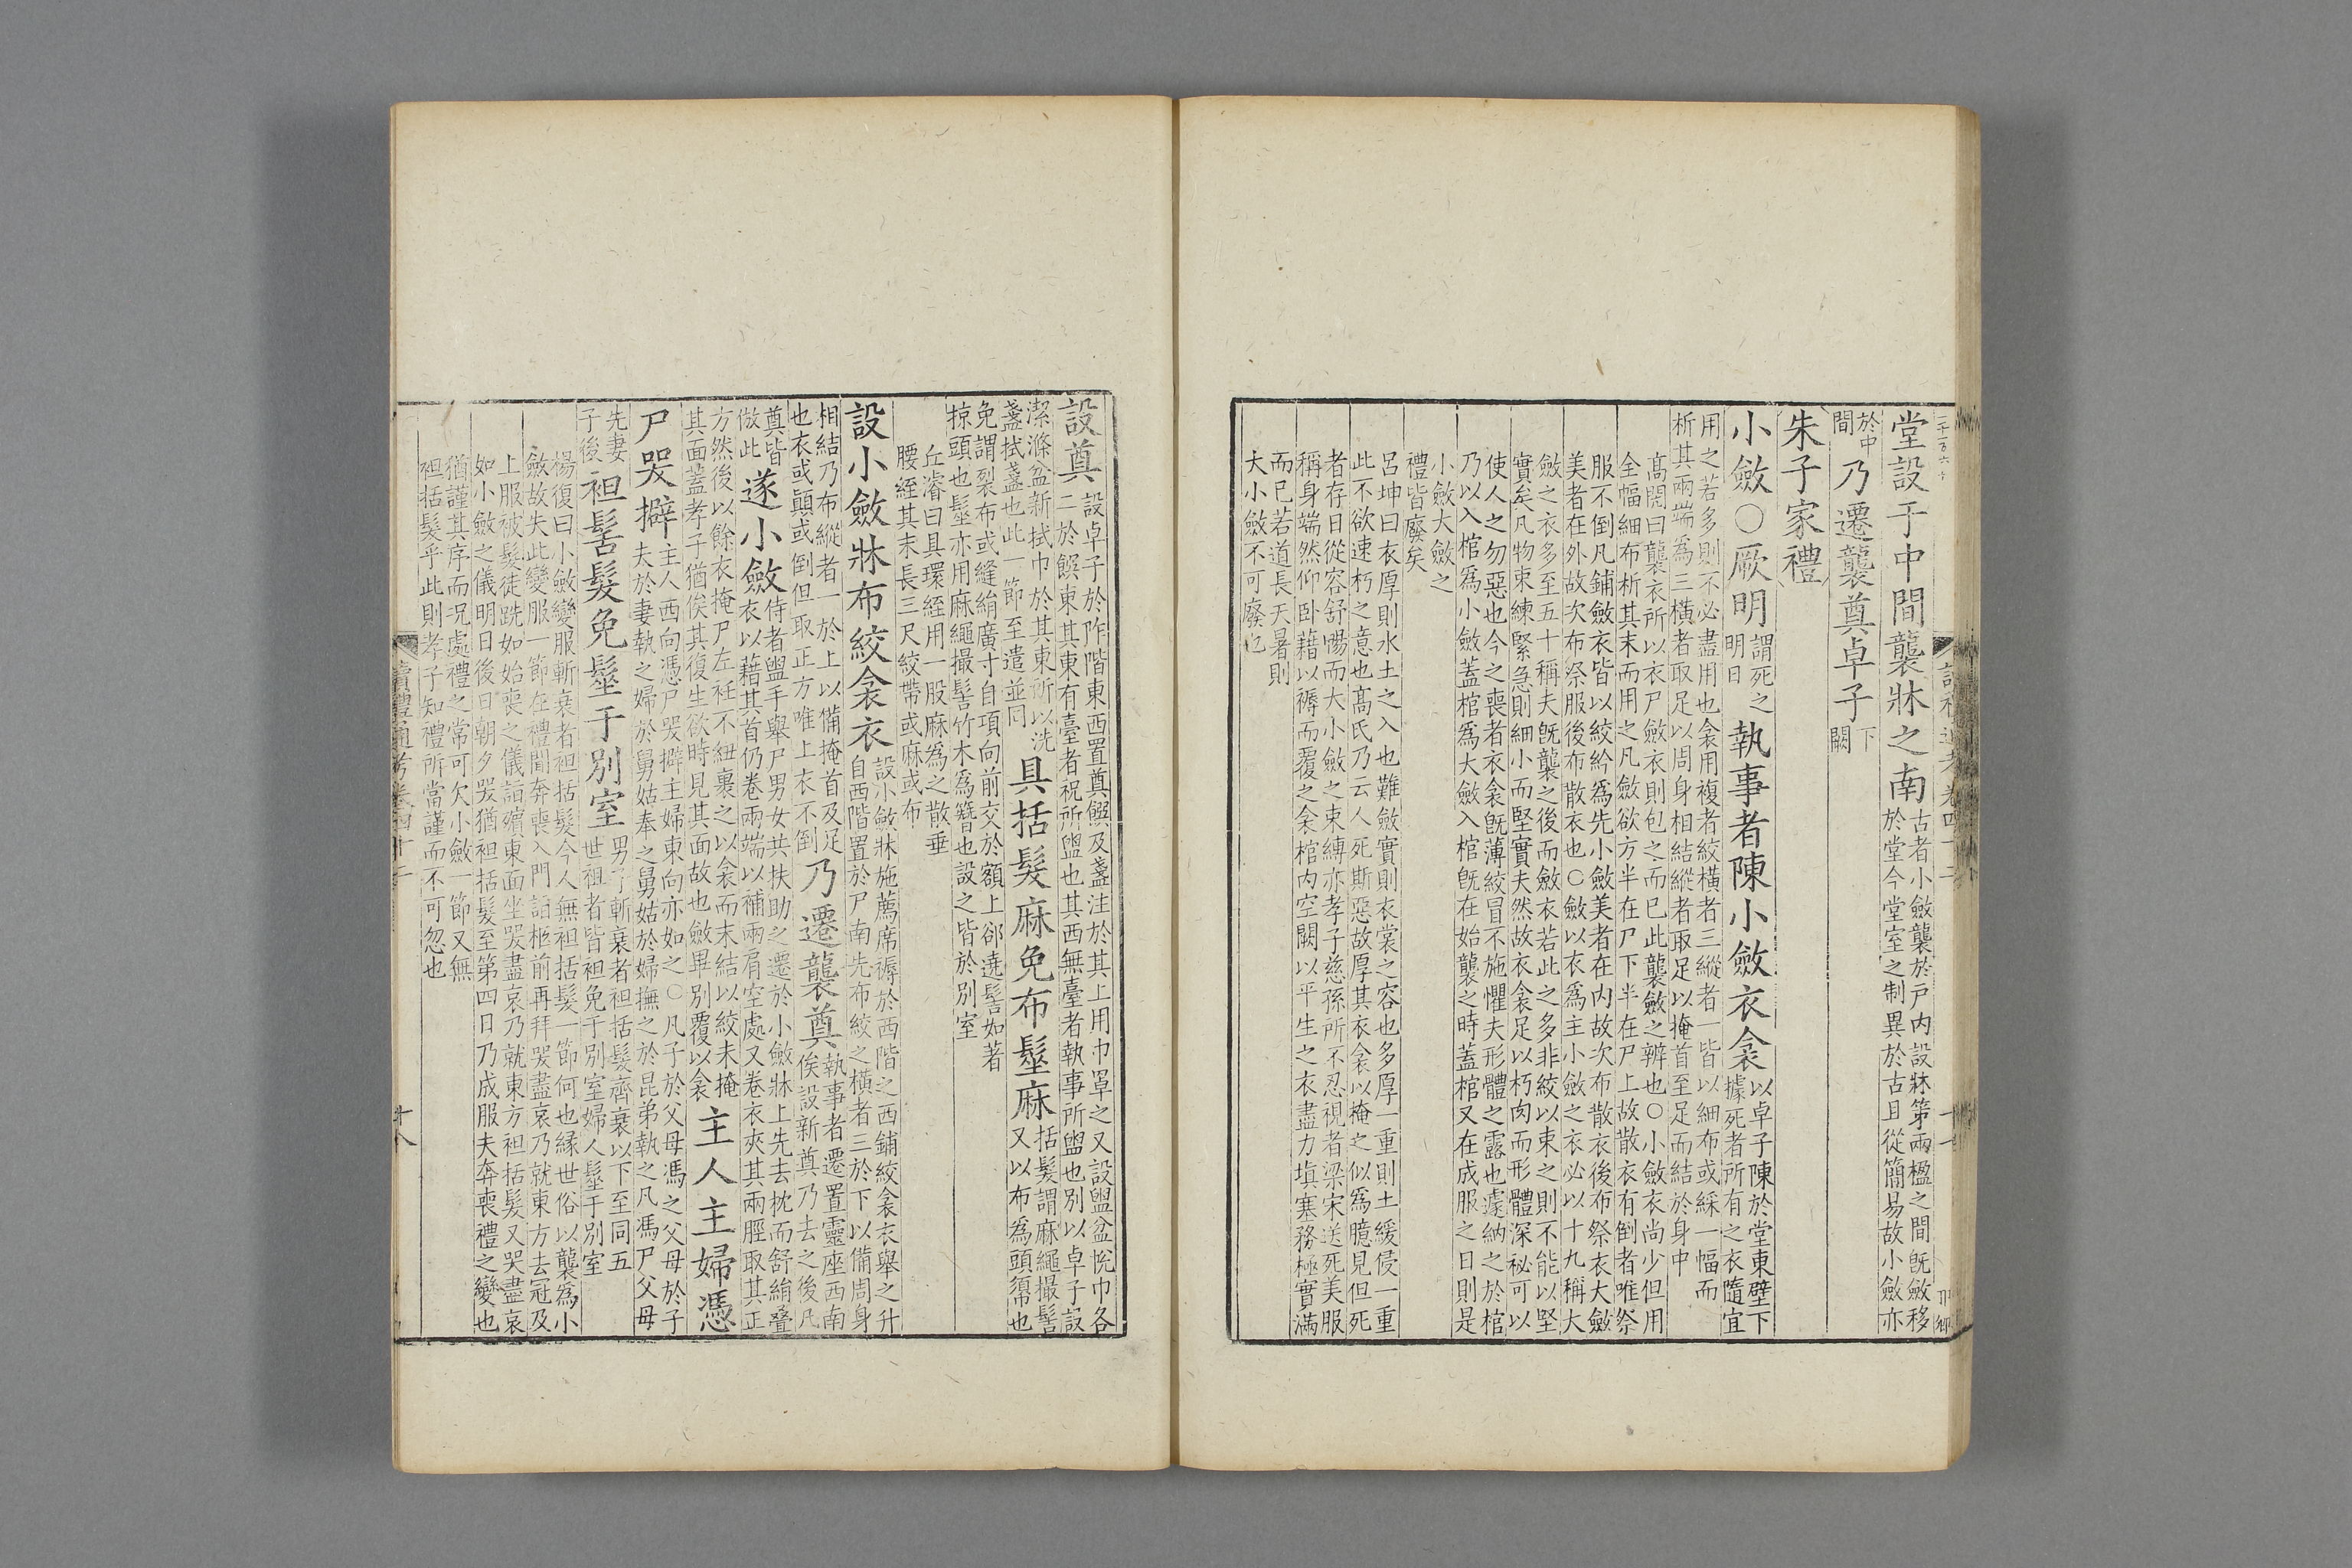 堂設于中間襲牀之南古者小斂襲於戸内設牀第兩楹之間既斂移
於堂今堂室之制異於古且從簡易故小斂亦
於中
間乃遷襲奠卓子下
闕
朱子家禮
小斂○厥明謂死之
明日執事者陳小斂衣衾以卓子陳於堂東壁下
據死者所有之衣隨宜
用之若多則不必盡用也衾用複者絞橫者三縱者一皆以細布或綵一幅而
析其兩端爲三橫者取足以周身相結縱者取足以掩首至足而結於身中
高閌曰襲衣所以衣尸斂衣則包之而已此襲斂之辨也○小斂衣尚少但用
全幅細布析其末而用之凡斂欲方半在尸下半在尸上故散衣有倒者唯祭
服不倒凡鋪斂衣皆以絞紟爲先小斂美者在内故次布散衣後布祭衣大斂
美者在外故次布祭服後布散衣也○斂以衣爲主小斂之衣必以十九稱大
斂之衣多至五十稱夫既襲之後而斂衣若此之多非絞以束之則不能以堅
實矣凡物束練緊急則細小而堅實夫然故衣衾足以朽肉而形體深秘可以
使人之勿惡也今之喪者衣衾既薄絞冒不施懼夫形體之露也遽納之於棺
乃以入棺爲小斂蓋棺爲大斂入棺既在始襲之時蓋棺又在成服之日則是
小斂大斂之
禮皆廢矣
呂坤曰衣厚則水土之入也難斂實則衣裳之容也多厚一重則土緩侵一重
此不欲速朽之意也高氏乃云人死斯惡故厚其衣衾以掩之似爲臆見但死
者存日從容舒暘而大小斂之束縛亦孝子慈孫所不忍視者梁宋送死美服
稱身端然仰卧藉以褥而覆之衾棺内空闕以平生之衣盡力填塞務極實滿
而已若道長天暑則
大小斂不可廢也
設奠設卓子於阼階東西置奠饌及盞注於其上用巾罩之又設盥盆帨巾各
二於饌東其東有臺者祝所盥也其西無臺者執事所盥也別以卓子設
潔滌盆新拭巾於其東所以洗
盞拭盞也此一節至遣並同具括髮麻免布髽麻括髮謂麻繩撮髻
又以布爲頭𢄼也
免謂裂布或縫絹廣寸自項向前交於額上郤遶髻如著
掠頭也髽亦用麻繩撮髻竹木爲簪也設之皆於別室
丘濬曰具環絰用一股麻爲之散垂
腰絰其末長三尺絞帶或麻或布
設小斂牀布絞衾衣設小斂牀施薦席褥於西階之西鋪絞衾衣舉之升
自西階置於尸南先布絞之橫者三於下以備周身
相結乃布縱者一於上以備掩首及足
也衣或顚或倒但取正方唯上衣不倒乃遷襲奠執事者遷置靈座西南
俟設新奠乃去之後凡
奠皆
倣此遂小斂侍者盥手舉尸男女共扶助之遷於小斂牀上先去枕而舒絹疊
衣以藉其首仍卷兩端以補兩肩空處又卷衣夾其兩脛取其正
方然後以餘衣掩尸左衽不紐裹之以衾而末結以絞未掩
其面蓋孝子猶俟其復生欲時見其面故也斂畢別覆以衾主人主婦憑
尸哭擗主人西向憑尸哭擗主婦東向亦如之○凡子於父母馮之父母於子
夫於妻執之婦於舅姑奉之舅姑於婦撫之於昆弟執之凡馮尸父母
先妻
子後袒髻髮免髽于別室男子斬衰者袒括髮齊衰以下至同五
世祖者皆袒免于別室婦人髽于別室
楊復曰小斂變服斬衰者袒括髮今人無袒括髮一節何也緣世俗以襲爲小
斂故失此變服一節在禮聞奔喪入門詣柩前再拜哭盡哀乃就東方去冠及
上服被髮徒跣如始喪之儀詣殯東面坐哭盡哀乃就東方袒括髮又哭盡哀
如小斂之儀明日後日朝夕哭猶袒括髮至第四日乃成服夫奔喪禮之變也
猶謹其序而况處禮之常可欠小斂一節又無
袒括髮乎此則孝子知禮所當謹而不可忽也
讀禮通考卷四十二
十八